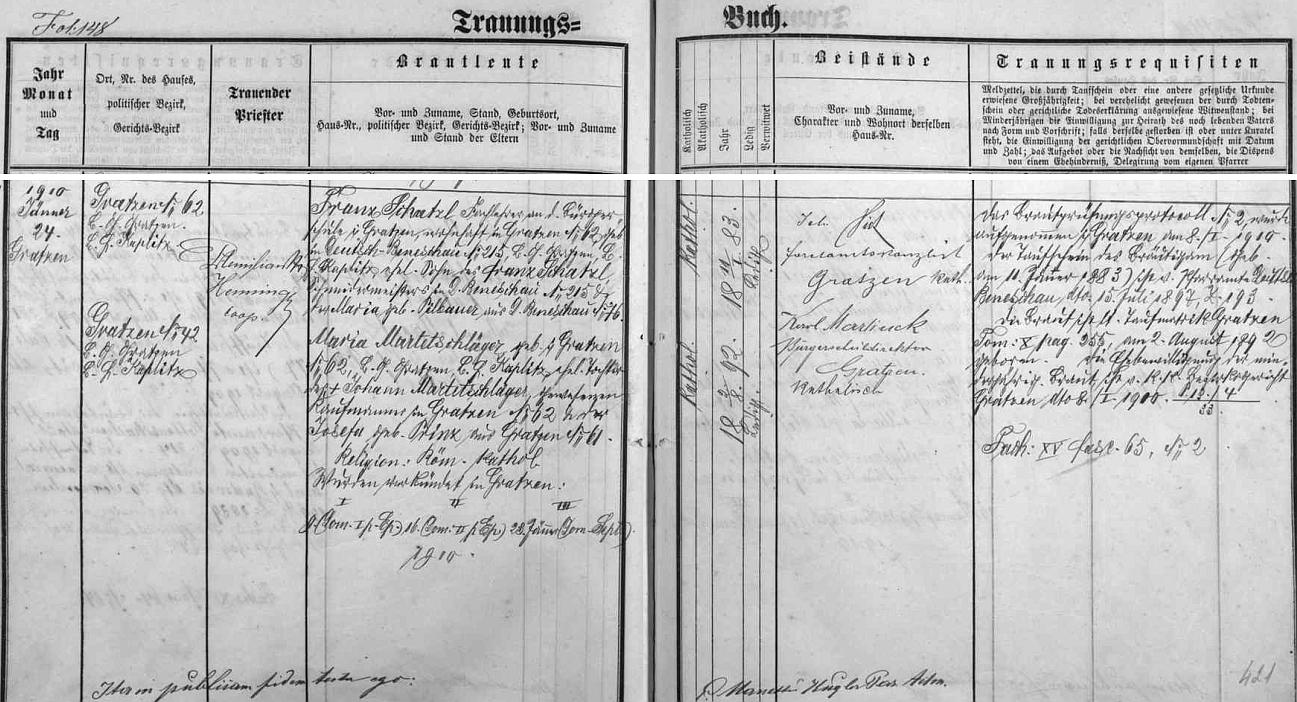 Fol. 148
Trauungs=
Buch.
Jahr
Monat
und
Tag
Ort, Nr. des Hauses,
politischer Bezirk,
Gerichts-Bezirk
Trauender
Priester
Brautleute
Vor- und Zuname, Stand, Geburtsort,
Haus-Nr., politischer Bezirk, Gerichts-Bezirk; Vor- und Zuname
und Stand der Eltern
Katholisch
Akatholisch
Jahr
Ledig
Verwitwet
Beistände
Vor- und Zuname,
Charakter und Wohnort derselben
Haus-Nr.
Trauungsrequisiten
Meldzettel, die durch Taufschein oder eine andere gesetzliche Urkunde
erwiesene Großjährigkeit; bei verehelicht gewesenen der durch Todten-
schein oder gerichtliche Todeserklärung ausgewiesene Witwenstand; bei
Minderjährigen die Einwilligung zur Heirath des noch lebenden Vaters
nach Form und Vorschrift; falls derselbe gestorben ist oder unter Kuratel
steht, die Einwilligung der gerichtlichen Obervormundschaft mit Datum
und Zahl; das Aufgebot oder die Nachsicht von demselben, die Dispens
von einem Ehehinderniß, Delegirung vom eigenen Pfarrer
1910
Jänner
24.
Gratzen
Gratzen № 62
B. H. Gratzen
B. G. Kaplitz
Gratzen № 42
B. G. Gratzen
B. H. Kaplitz
Henning
coop.
Franz Schatzl Fachlehrer an d. Bürger-
schule in Gratzen, wohnhaft in Gratzen № 62, geb.
in Deutsch-Beneschau № 215, B. G. Gratzen, B.
H. Kaplitz, ehel. Sohn des Franz Schatzl,
Schneidermeisters in D. Beneschau № 215 &
der Maria geb. aus D. Beneschau № 76.
Maria Martetschläger, geb. in Gratzen
№ 62, B. G. Gratzen, B. H. Kaplitz, ehel. Tochter
des † Johann Martetschläger, gewesenen
Kaufmannes in Gratzen № 62 & der
Josefa geb. Prinz aus Gratzen № 61.
Religion: Röm. kathol.
Wurden verkündet in Gratzen:
I II III
9. (Dom. I p. Ep.) 16. (Dom. II p. Ep.) 23. Jänner (Dom. Sept.)
1910.
Kathol.
18 11/1 83.
Ledig
Kathol.
18 2/8 92.
Ledig
Forstamtskanzlist
Gratzen kath.
Karl
Bürgerschuldirektor
Gratzen.
Katholisch
Das Brautprüfungsprotocoll № 2, wurde
aufgenommen in Gratzen am 8./I. 1910.
Der Taufschein des Bräutigam (geb.
am 11. Jänner 1883) ist v. Pfarramte Deutsch
Beneschau, dto 15. Juli 1897, Z. 193.
Die Braut ist lt. Taufmatrik Gratzen
Tom: X pag. 255, am 2. August 1892
geboren. Die Ehebewilligung der min-
derjährig. Braut ist v. k. k. Bezirksgericht
Gratzen dto 8./I. 1910.
Fasc. 65, № 2
Ita in publicam fidem teste ego:
421